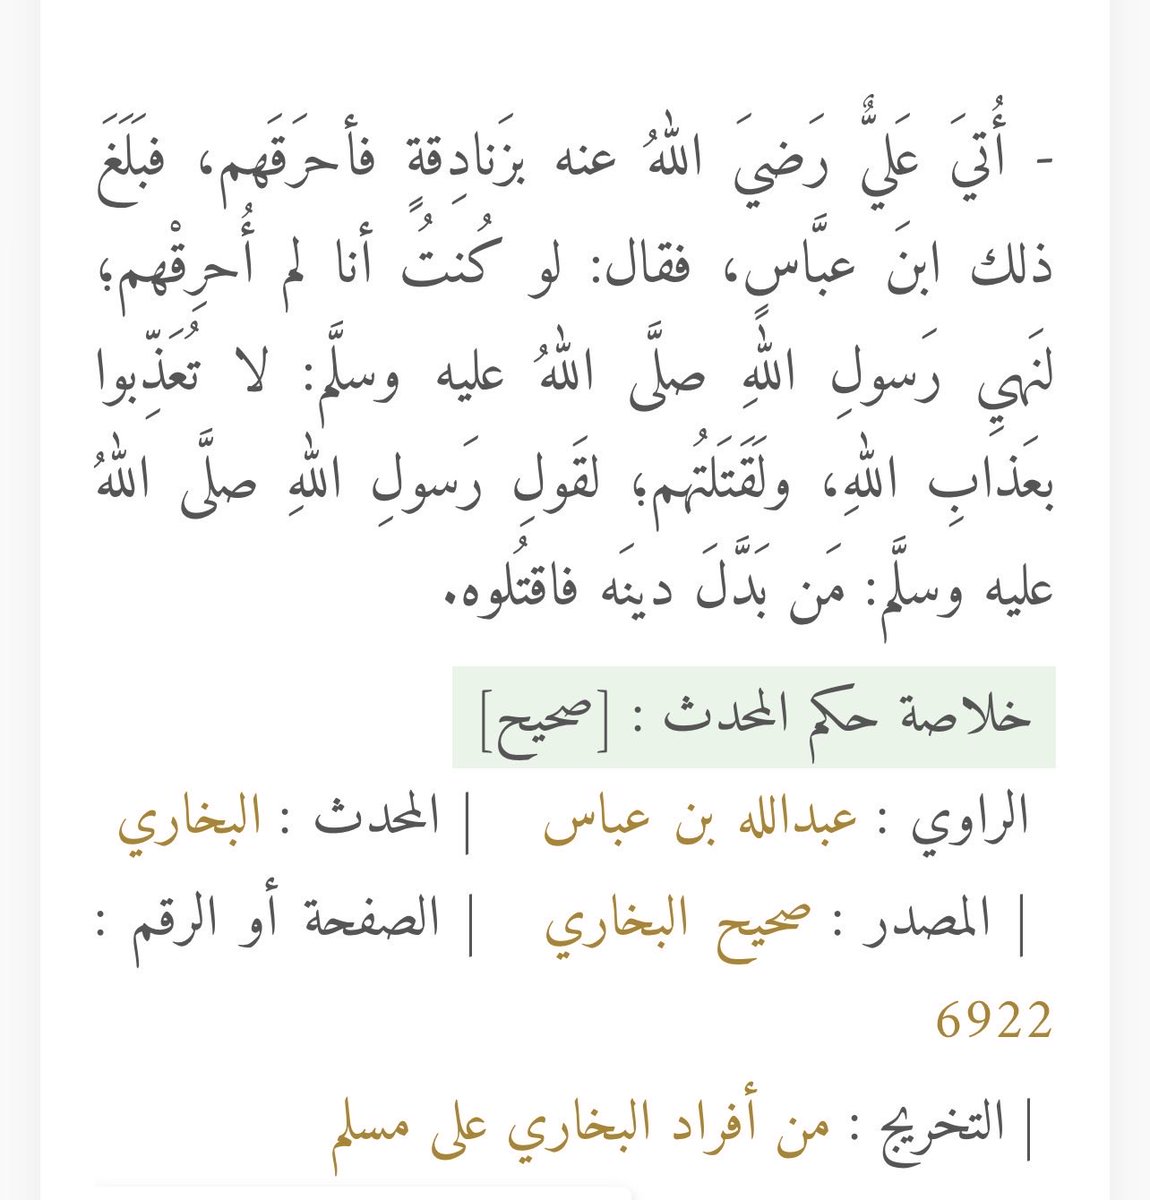 - أُتيَ عَليٌّ رَضيَ اللهُ عنه بزَنادِقةٍ فأحرَقَهم، فبَلَغَ
ذلك ابنَ عبَّاسٍ، فقال: لو كُنتُ أنا لم أُحرِقْهم؛
لنَهيِ رَسولِ اللهِ صلَّى اللهُ عليه وسلَّم: لا تُعَذِّبوا
بعَذابِ اللهِ، ولَقَتَلتُهم؛ لقَولِ رَسولِ اللهِ صلَّى اللهُ
عليه وسلَّم: مَن بَدَّلَ دينَه فاقتُلوه.
خلاصة حكم المحدث : [صحيح]
الراوي : عبدالله بن عباس | المحدث : البخاري
| المصدر : صحيح البخاري | الصفحة أو الرقم :
6922
| التخريج : من أفراد البخاري على مسلم